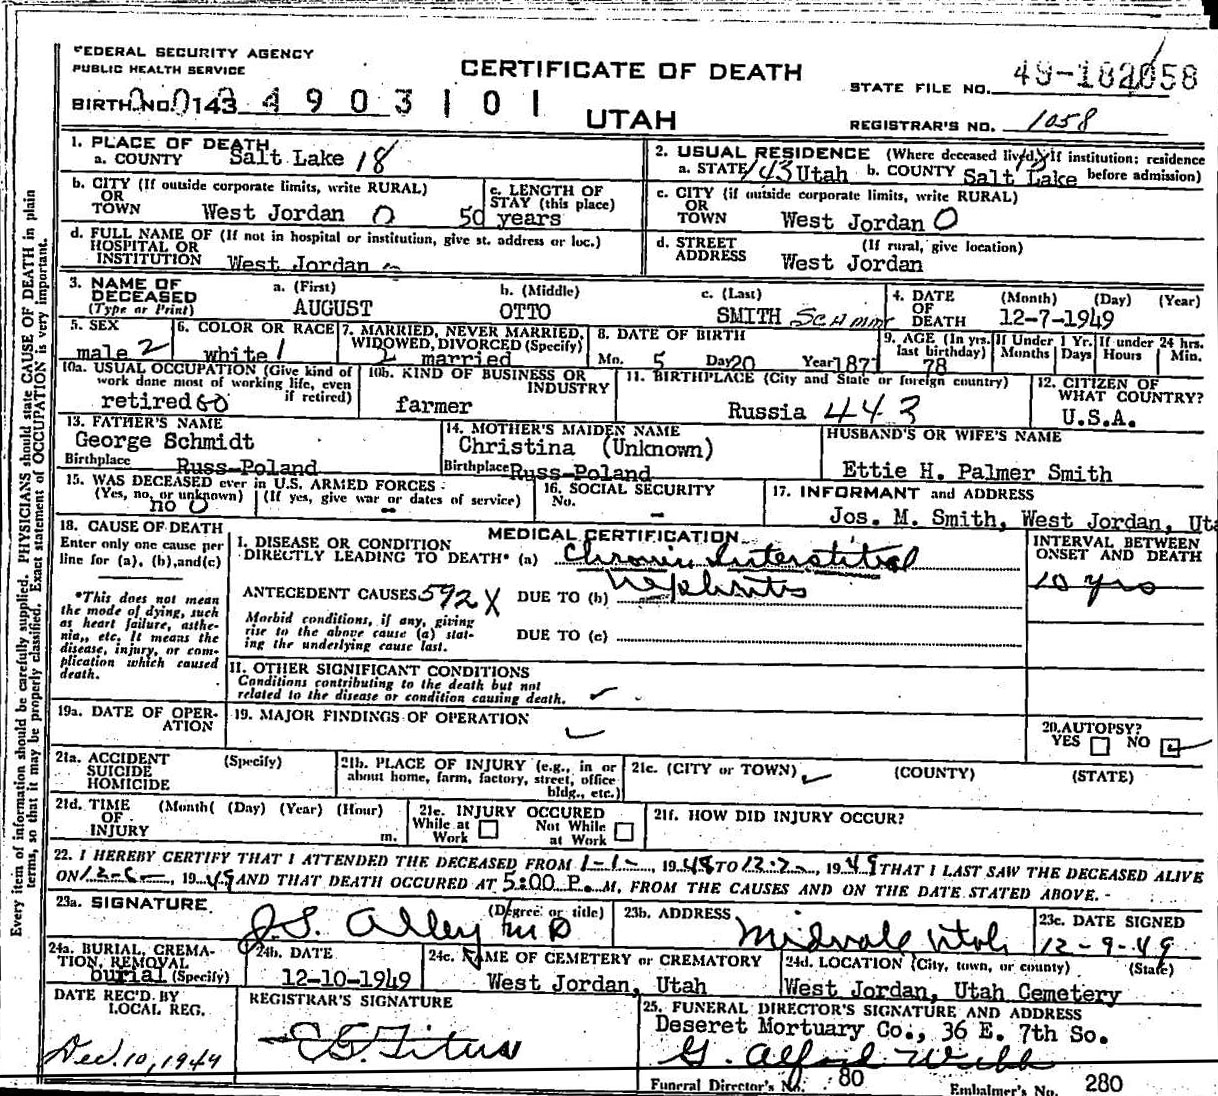 FEDERAL SECURITY AGENCY
PUBLIC HEALTH SERVICE
CERTIFICATE OF DEATH
STATE FILE NO. 49-182058
BIRTH NO. 143 4 9 0 3 1 0 1
UTAH
REGISTRAR'S NO. 1058
1. PLACE OF DEATH
a. COUNTY Salt Lake 18
2. USUAL RESIDENCE (Where deceased lived. If institution: residence before admission)
a. STATE 143 Utah b. COUNTY Salt Lake 18
b. CITY (If outside corporate limits, write RURAL) OR TOWN West Jordan 0
c. LENGTH OF STAY (this place) 50 years
c. CITY (if outside corporate limits, write RURAL) OR TOWN West Jordan 0
d. FULL NAME OF (If not in hospital or institution, give st. address or loc.) HOSPITAL OR INSTITUTION West Jordan
d. STREET ADDRESS (If rural, give location) West Jordan
3. NAME OF DECEASED (Type or Print)
a. (First) AUGUST
b. (Middle) OTTO
c. (Last) SMITH Schmidt
4. DATE OF DEATH (Month) (Day) (Year) 12-7-1949
5. SEX male 2
6. COLOR OR RACE white 1
7. MARRIED, NEVER MARRIED, WIDOWED, DIVORCED (Specify) 2 married
8. DATE OF BIRTH Mo. 5 Day 20 Year 1871
9. AGE (In yrs. last birthday) 78
If Under 1 Yr. Months Days
If under 24 hrs. Hours Min.
10a. USUAL OCCUPATION (Give kind of work done most of working life, even if retired) retired 60
10b. KIND OF BUSINESS OR INDUSTRY farmer
11. BIRTHPLACE (City and State or foreign country) Russia 443
12. CITIZEN OF WHAT COUNTRY? U.S.A.
13. FATHER'S NAME George Schmidt
Birthplace Russ-Poland
14. MOTHER'S MAIDEN NAME Christina (Unknown)
Birthplace Russ-Poland
HUSBAND'S OR WIFE'S NAME Ettie H. Palmer Smith
15. WAS DECEASED ever in U.S. ARMED FORCES
(Yes, no, or unknown) no 0
(If yes, give war or dates of service) -
16. SOCIAL SECURITY No. -
17. INFORMANT and ADDRESS Jos. M. Smith, West Jordan, Uta
18. CAUSE OF DEATH
Enter only one cause per line for (a), (b), and (c)
*This does not mean the mode of dying, such as heart failure, asthenia, etc. It means the disease, injury, or complication which caused death.
MEDICAL CERTIFICATION
I. DISEASE OR CONDITION DIRECTLY LEADING TO DEATH* (a) Chronic Interstitial Nephritis
INTERVAL BETWEEN ONSET AND DEATH 10 yrs
ANTECEDENT CAUSES 592X DUE TO (b)
Morbid conditions, if any, giving rise to the above cause (a) stating the underlying cause last.
DUE TO (c)
II. OTHER SIGNIFICANT CONDITIONS
Conditions contributing to the death but not related to the disease or condition causing death.
19a. DATE OF OPERATION
19. MAJOR FINDINGS OF OPERATION
20. AUTOPSY? YES NO
21a. ACCIDENT SUICIDE HOMICIDE (Specify)
21b. PLACE OF INJURY (e.g., in or about home, farm, factory, street, office bldg., etc.)
21c. (CITY or TOWN) (COUNTY) (STATE)
21d. TIME OF INJURY (Month( (Day) (Year) (Hour) m.
21e. INJURY OCCURED While at Work Not While at Work
21f. HOW DID INJURY OCCUR?
22. I HEREBY CERTIFY THAT I ATTENDED THE DECEASED FROM 1-1-, 1948 TO 12-7-, 1949 THAT I LAST SAW THE DECEASED ALIVE
ON 12-6-, 1949 AND THAT DEATH OCCURED AT 5:00 P.M, FROM THE CAUSES AND ON THE DATE STATED ABOVE.
23a. SIGNATURE (Degree or title) J.S. Alley MD
23b. ADDRESS Midvale Utah
23c. DATE SIGNED 12-9-49
24a. BURIAL, CREMATION, REMOVAL (Specify) burial
24b. DATE 12-10-1949
24c. NAME OF CEMETERY or CREMATORY West Jordan, Utah
24d. LOCATION (City, town, or county) (State) West Jordan, Utah Cemetery
DATE REC'D. BY LOCAL REG. Dec. 10, 1949
REGISTRAR'S SIGNATURE E G. Titus
25. FUNERAL DIRECTOR'S SIGNATURE AND ADDRESS
Deseret Mortuary Co., 36 E. 7th So.
G. Alford Webb
Funeral Director's No. 80 Embalmer's No. 280
Every item of information should be carefully supplied. PHYSICIANS should state CAUSE OF DEATH in plain
terms, so that it may be properly classified. Exact statement of OCCUPATION is very important.